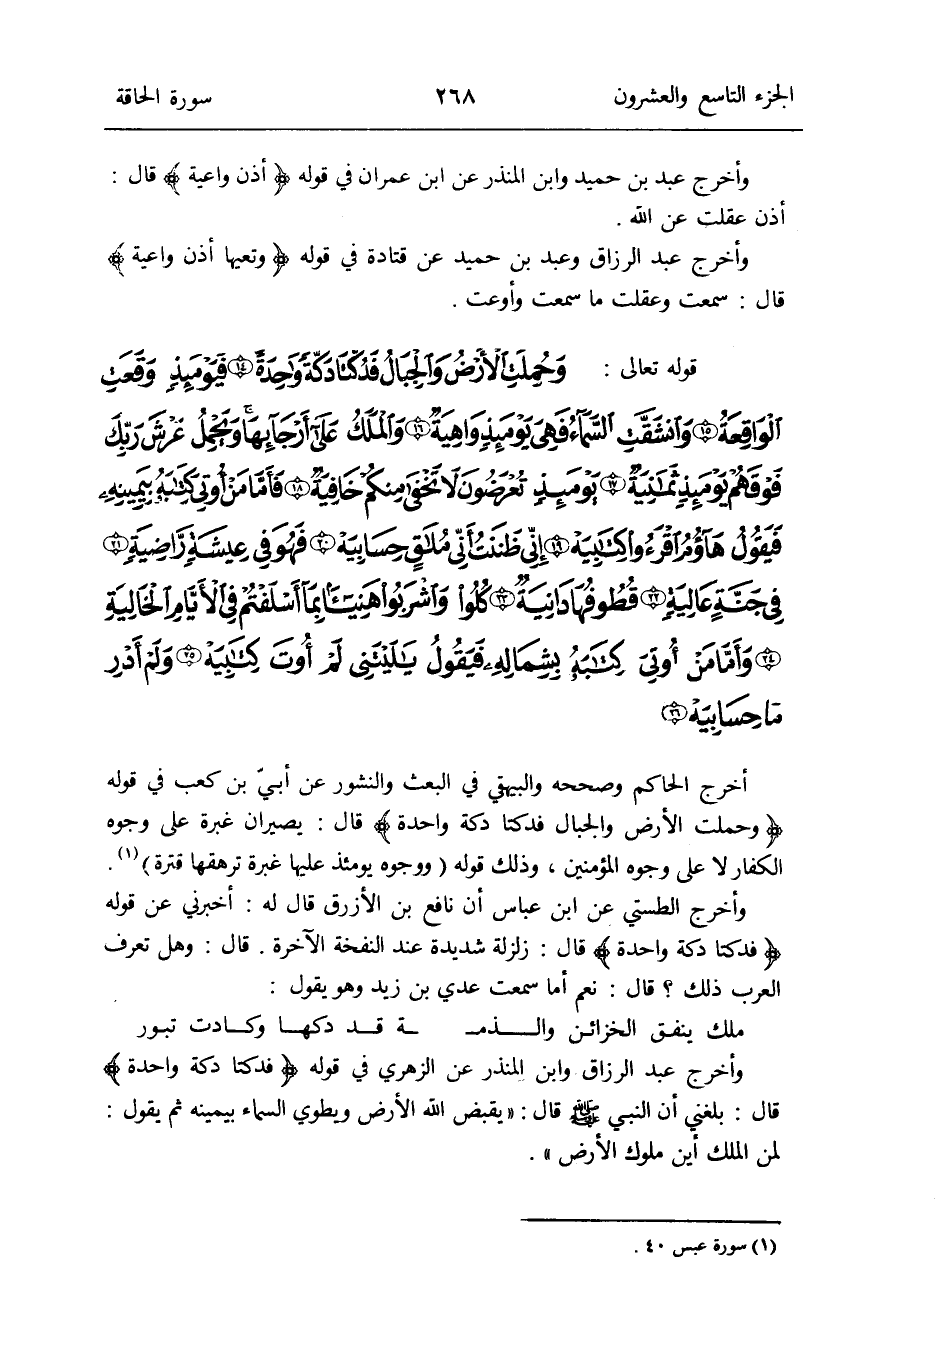 الجزء التاسع والعشرون ٢٦٨ سورة الحاقة
وأخرج عبد بن حميد وابن المنذر عن ابن عمران في قوله ﴿ أذن واعية ﴾ قال :
أذن عقلت عن الله .
وأخرج عبد الرزاق وعبد بن حميد عن قتادة في قوله ﴿ وتعيها أذن واعية ﴾
قال : سمعت وعقلت ما سمعت وأوعت .
قوله تعالى : وَحُمِلَتِ ٱلْأَرْضُ وَٱلْجِبَالُ فَدُكَّتَا دَكَّةً وَٰحِدَةً ١٤ فَيَوْمَئِذٍ وَقَعَتِ
ٱلْوَاقِعَةُ ١٥ وَٱنشَقَّتِ ٱلسَّمَآءُ فَهِىَ يَوْمَئِذٍ وَاهِيَةٌ ١٦ وَٱلْمَلَكُ عَلَىٰٓ أَرْجَآئِهَا ۚ وَيَحْمِلُ عَرْشَ رَبِّكَ
فَوْقَهُمْ يَوْمَئِذٍ ثَمَٰنِيَةٌ ١٧ يَوْمَئِذٍ تُعْرَضُونَ لَا تَخْفَىٰ مِنكُمْ خَافِيَةٌ ١٨ فَأَمَّا مَنْ أُوتِىَ كِتَٰبَهُۥ بِيَمِينِهِۦ
فَيَقُولُ هَآؤُمُ ٱقْرَءُوا۟ كِتَٰبِيَهْ ١٩ إِنِّى ظَنَنتُ أَنِّى مُلَٰقٍ حِسَابِيَهْ ٢٠ فَهُوَ فِى عِيشَةٍ رَّاضِيَةٍ ٢١
فِى جَنَّةٍ عَالِيَةٍ ٢٢ قُطُوفُهَا دَانِيَةٌ ٢٣ كُلُوا۟ وَٱشْرَبُوا۟ هَنِيٓـًٔۢا بِمَآ أَسْلَفْتُمْ فِى ٱلْأَيَّامِ ٱلْخَالِيَةِ
٢٤ وَأَمَّا مَنْ أُوتِىَ كِتَٰبَهُۥ بِشِمَالِهِۦ فَيَقُولُ يَٰلَيْتَنِى لَمْ أُوتَ كِتَٰبِيَهْ ٢٥ وَلَمْ أَدْرِ
مَا حِسَابِيَهْ ٢٦
أخرج الحاكم وصححه والبيهقي في البعث والنشور عن أبيّ بن كعب في قوله
﴿ وحملت الأرض والجبال فدكتا دكة واحدة ﴾ قال : يصيران غبرة على وجوه
الكفار لا على وجوه المؤمنين ، وذلك قوله ( ووجوه يومئذ عليها غبرة ترهقها قترة ) (١) .
وأخرج الطستي عن ابن عباس أن نافع بن الأزرق قال له : أخبرني عن قوله
﴿ فدكتا دكة واحدة ﴾ قال : زلزلة شديدة عند النفخة الآخرة . قال : وهل تعرف
العرب ذلك ؟ قال : نعم أما سمعت عدي بن زيد وهو يقول :
ملك ينفق الخزائن والـــذمـ ـة قـد دكهـا وكـادت تبور
وأخرج عبد الرزاق وابن المنذر عن الزهري في قوله ﴿ فدكتا دكة واحدة ﴾
قال : بلغني أن النبي ﷺ قال : « يقبض الله الأرض ويطوي السماء بيمينه ثم يقول :
لمن الملك أين ملوك الأرض » .
(١) سورة عبس ٤٠ .